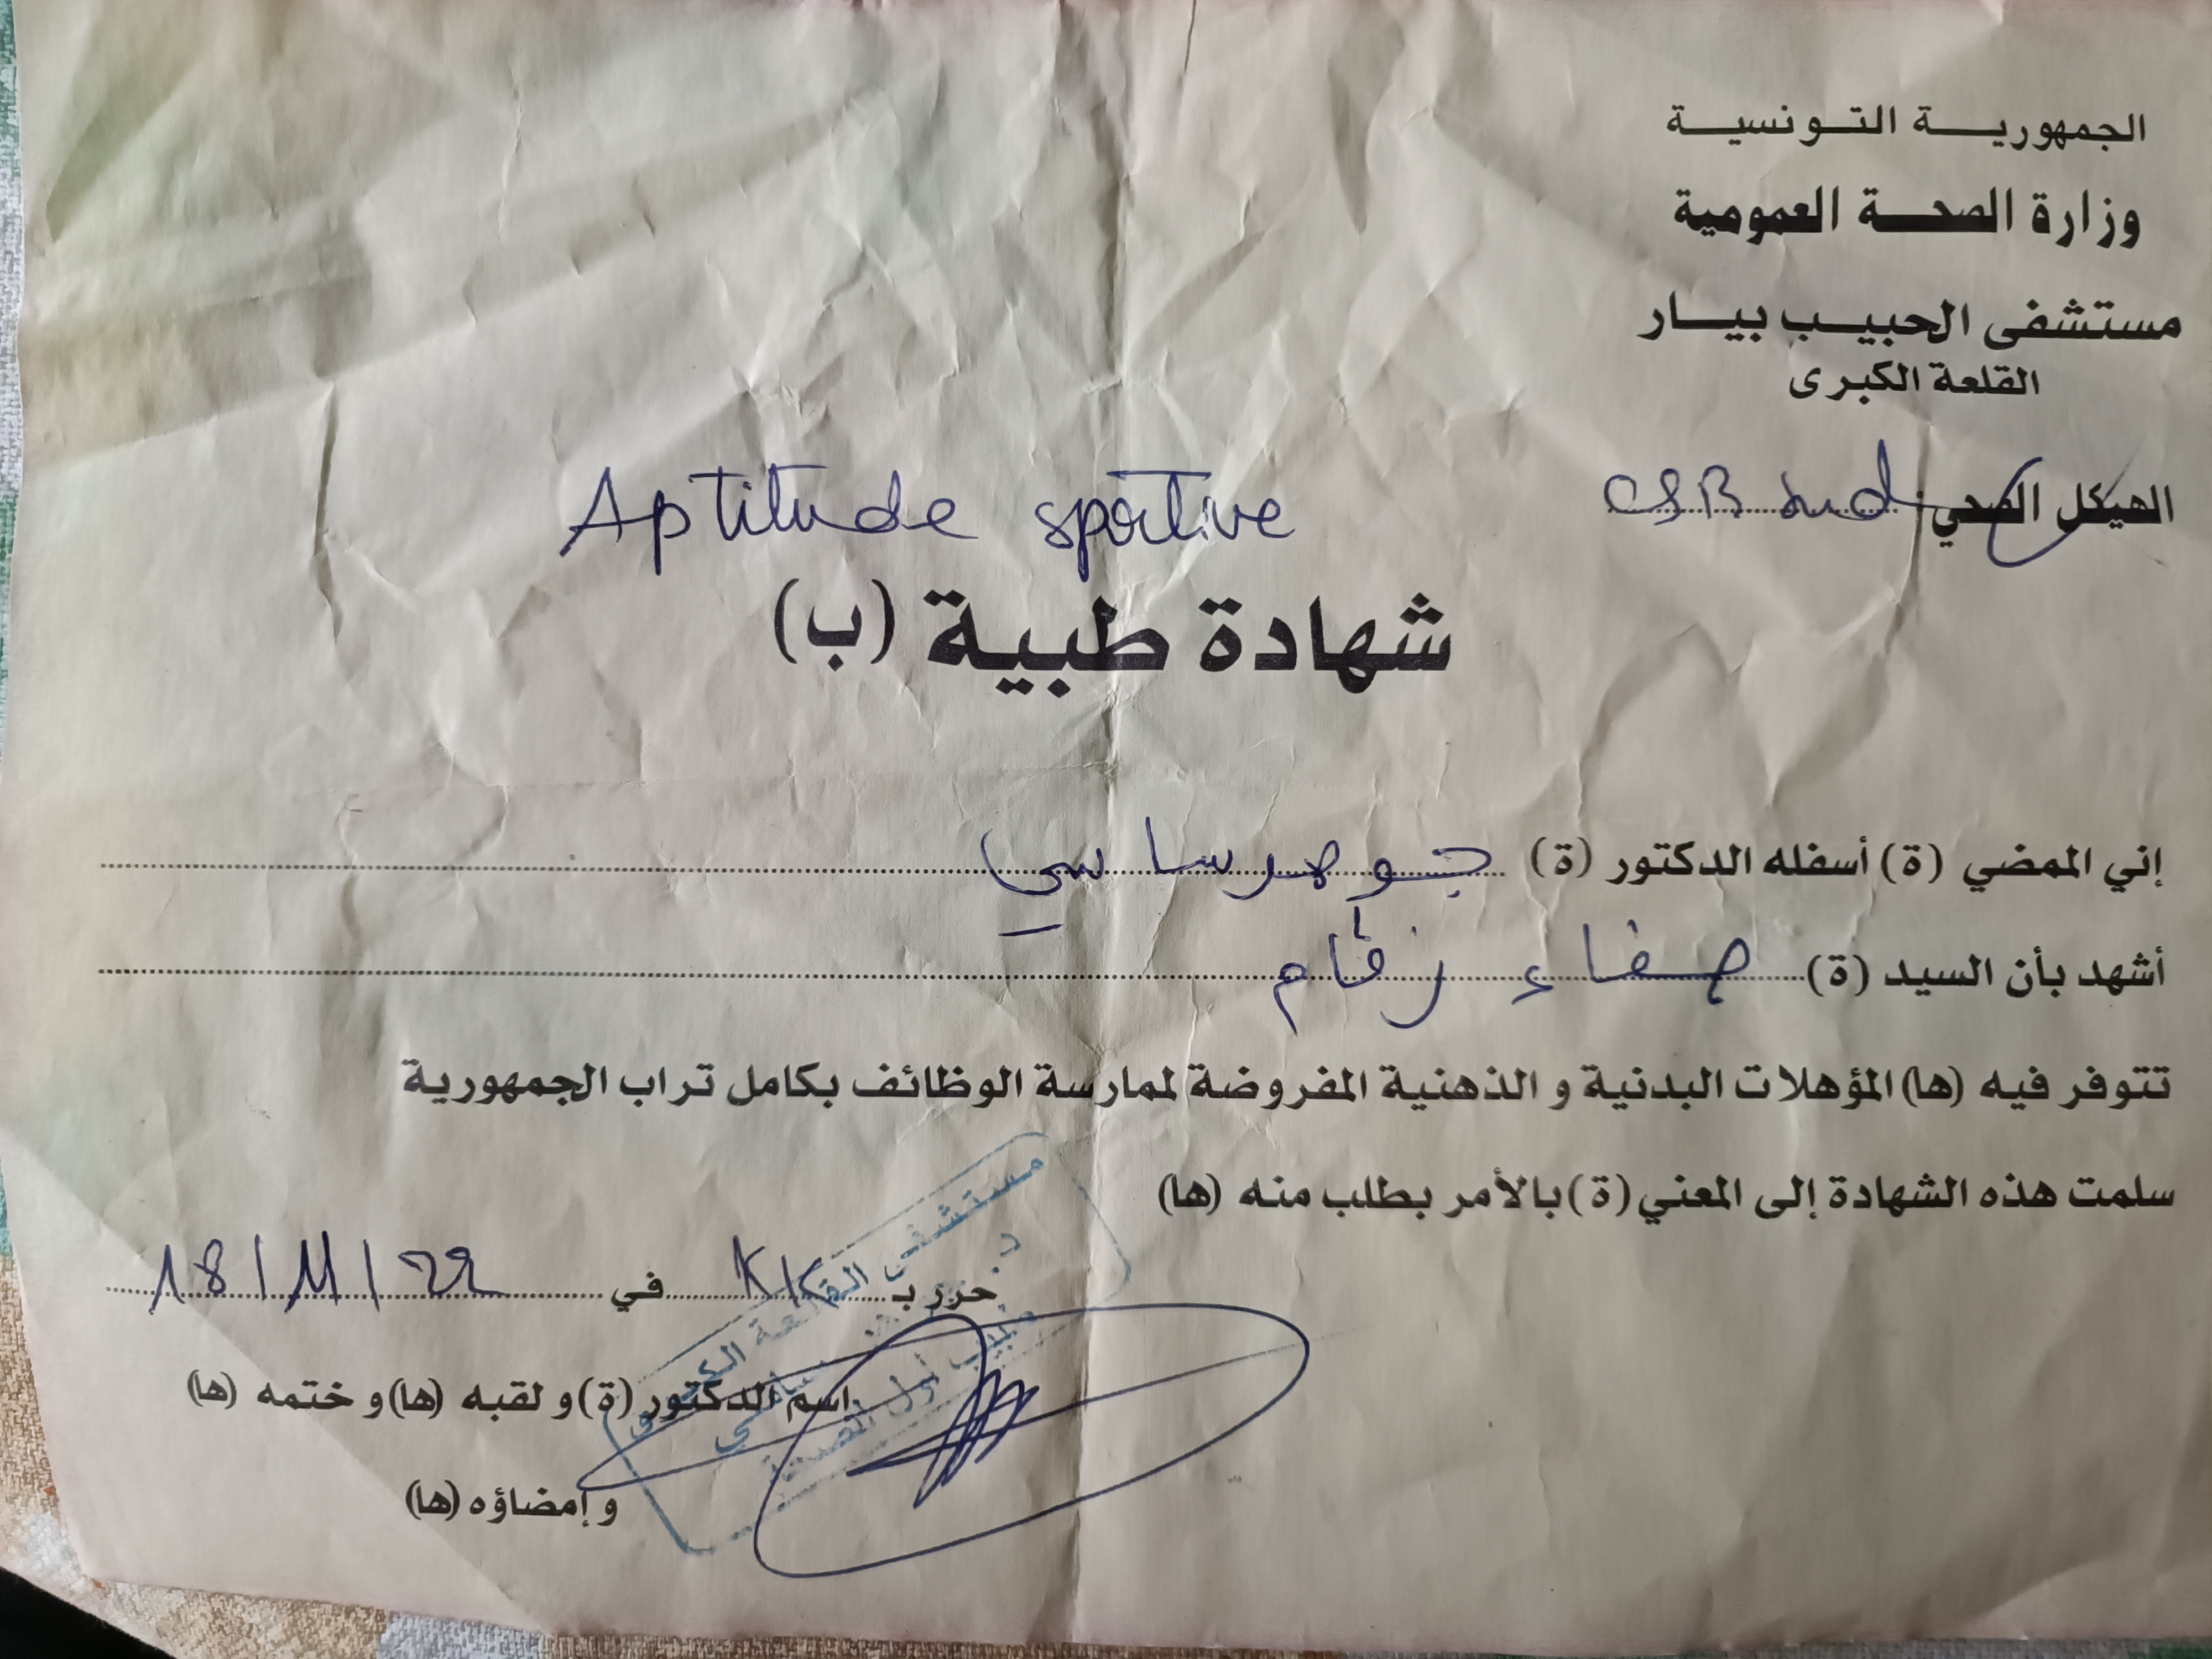 الجمهورية التونسية
وزارة الصحة العمومية
مستشفى الحبيب بيار
القلعة الكبرى
الهيكل الصحي: CSB
Aptitude sportive
شهادة طبية (ب)
إني الممضي (ة) أسفله الدكتور (ة) جوهر ساسي
أشهد بأن السيد (ة) صفاء زقام
تتوفر فيه (ها) المؤهلات البدنية و الذهنية المفروضة لممارسة الوظائف بكامل تراب الجمهورية
سلمت هذه الشهادة إلى المعني (ة) بالأمر بطلب منه (ها)
حرر بـ KK في 18/11/22
اسم الدكتور (ة) و لقبه (ها) و ختمه (ها)
و إمضاؤه (ها)
مستشفى القلعة الكبرى